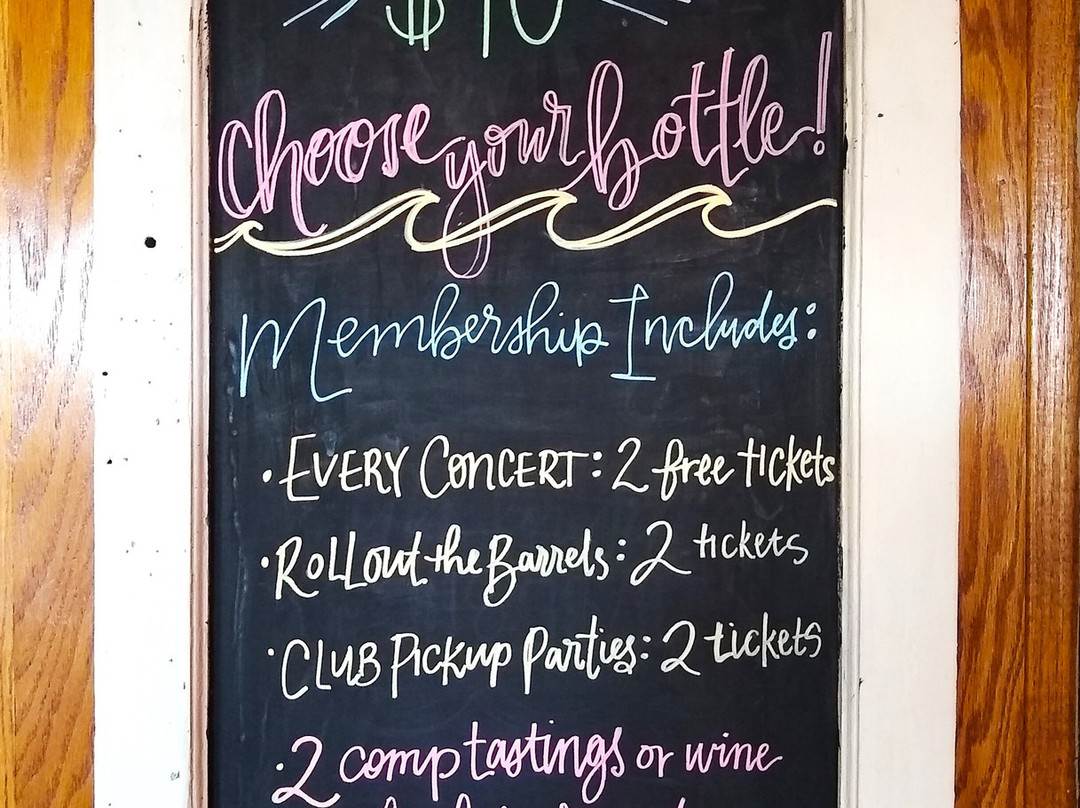 Choose your bottle!
Membership Includes:
• EVERY CONCERT: 2 free tickets
• Roll out the Barrels: 2 tickets
• CLUB Pickup Parties: 2 tickets
• 2 comp tastings or wine